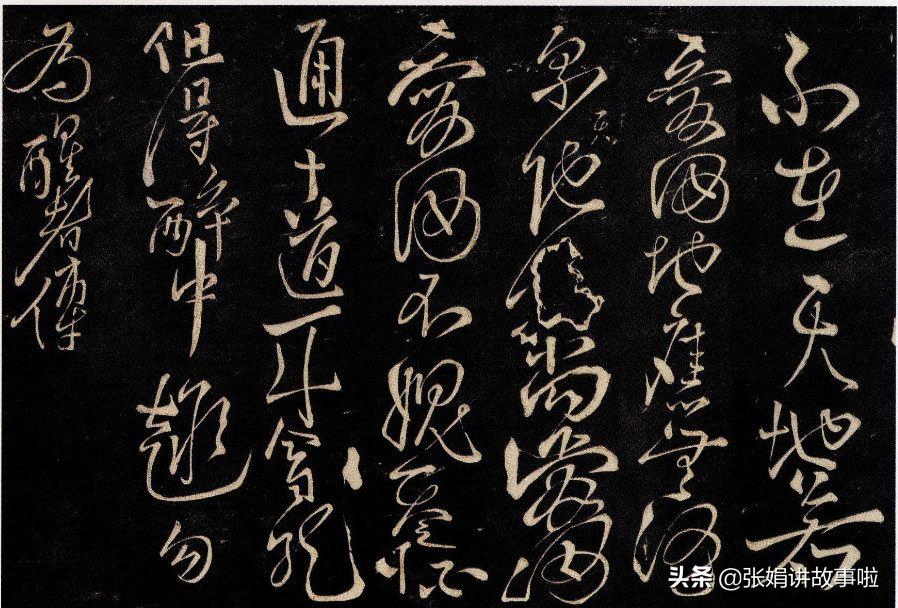 不在天地若
愛酒地應無酒
泉天地酒
愛酒不愧天三杯
通大道一斗合自然
但得醉中趣勿
為醒者傳
头条 @张娟讲故事啦